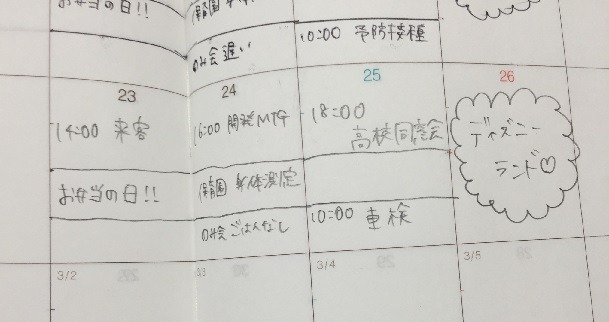 お弁当の日!!
のみ会 遅い
10:00 予防接種
23
24
25
26
14:00 来客
16:00 開発MTG
18:00
高校同窓会
ディズニー
ランド♡
お弁当の日!!
保育園 身体測定
のみ会 ごはんなし
10:00 車検
3/2
3/3
3/4
3/5